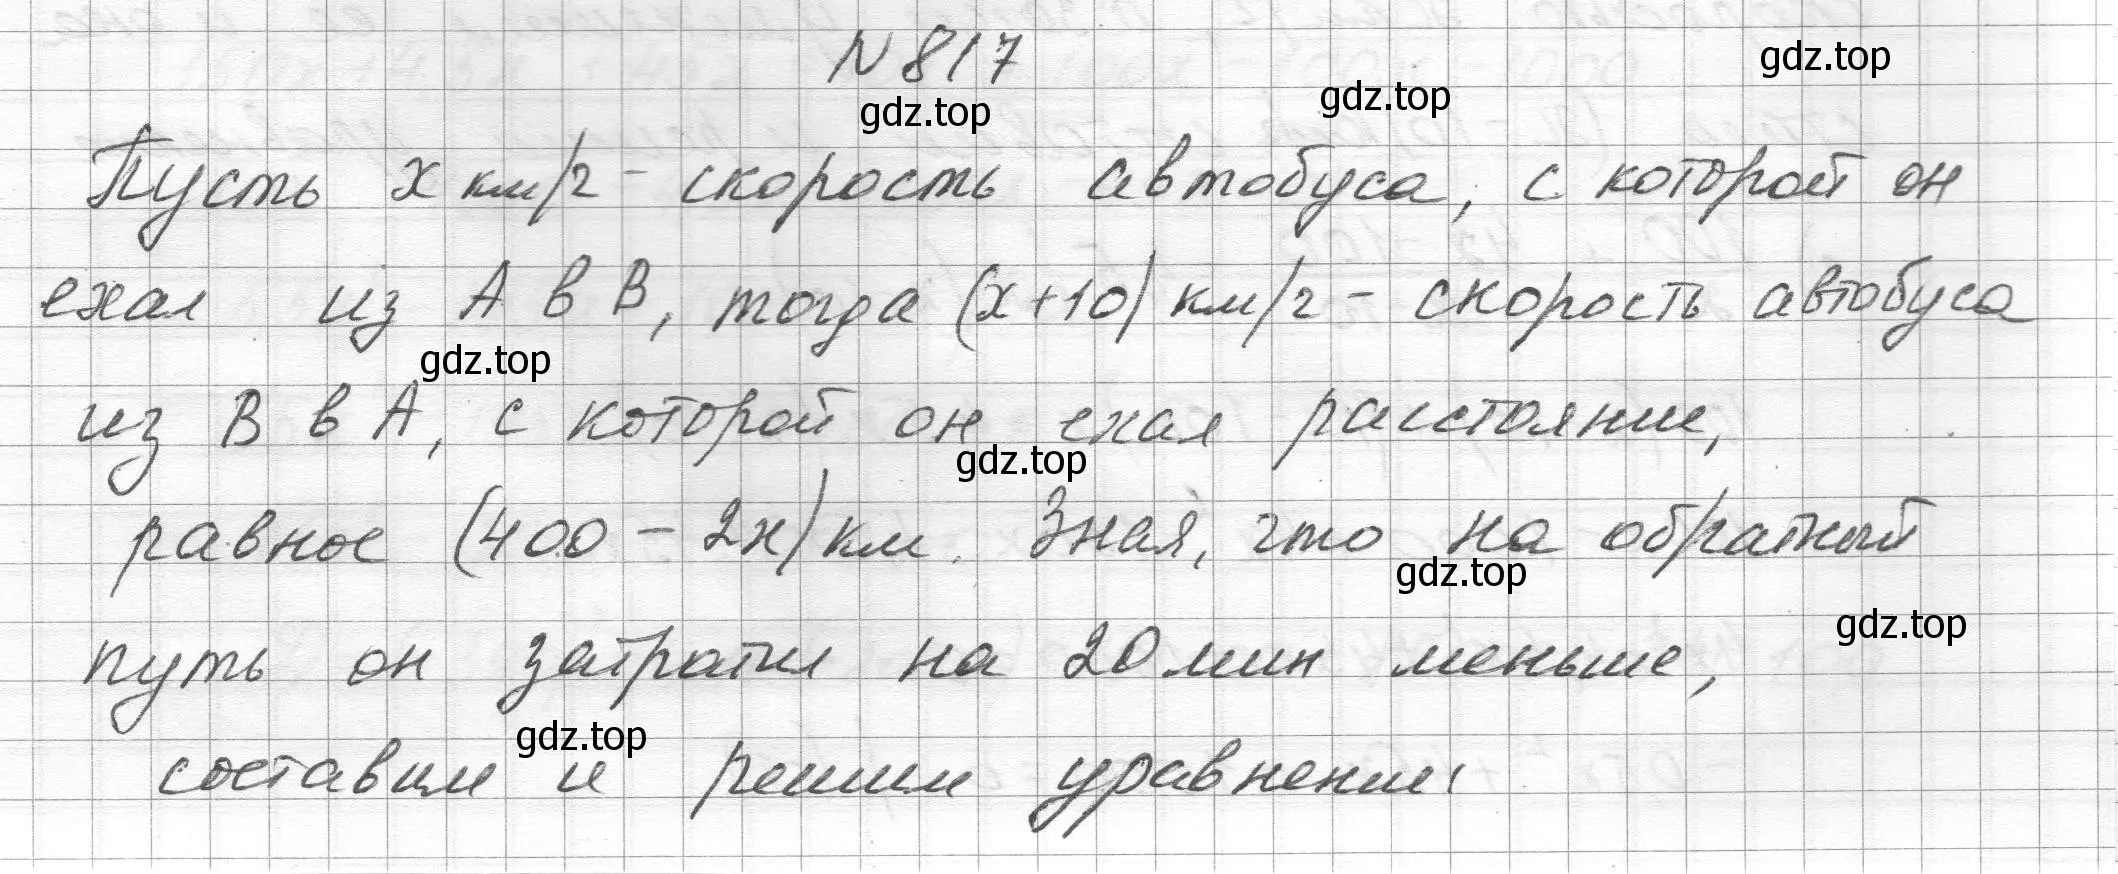 N 817
gdz.top
gdz.top
gdz.top
Пусть x км/ч - скорость автобуса, с которой он
ехал из А в В, тогда (x+10) км/ч - скорость автобуса
gdz.top
из В в А, с которой он ехал расстояние,
gdz.top
равное (400 - 2x) км. Зная, что на обратный
gdz.top
gdz.top
путь он затратил на 20 мин меньше,
gdz.top
составим и решим уравнение: